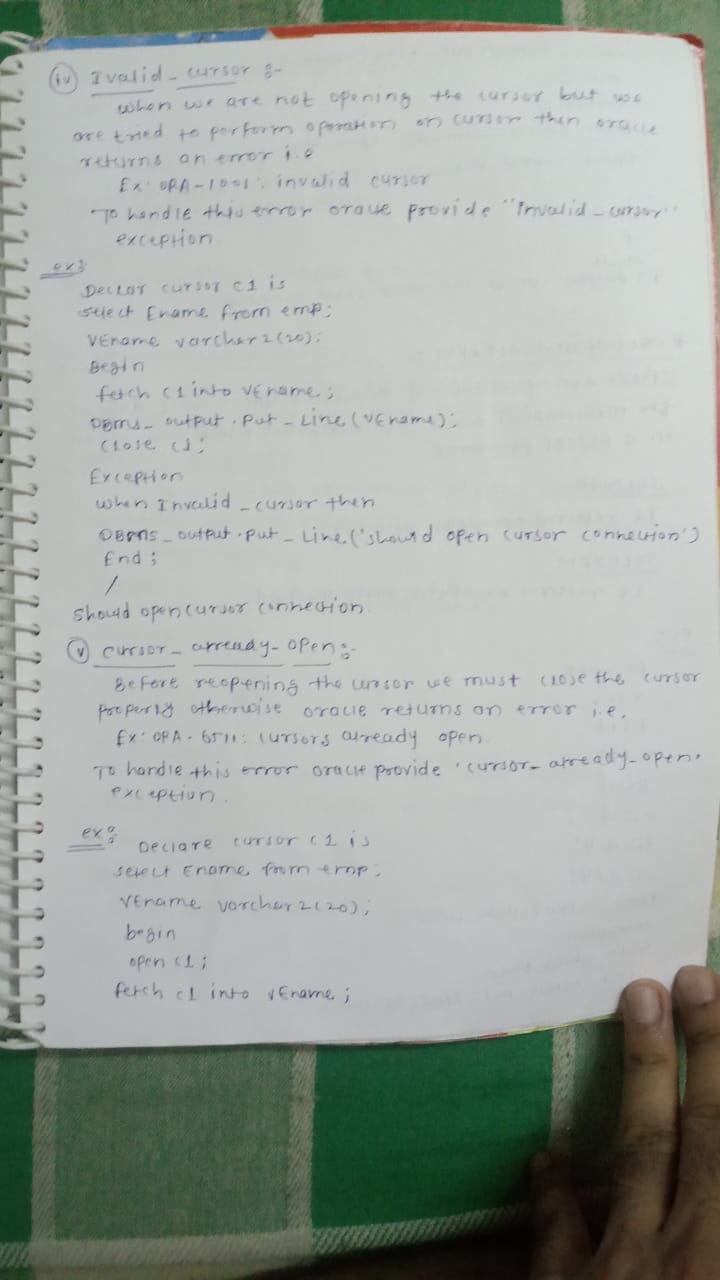 (iv) Ivalid_cursor :-
when we are not opening the cursor but we
are tried to perform operation on cursor then oracle
returns an error i.e
Ex: ORA-1001: invalid cursor
To handle this error oracle provide "Invalid_cursor"
exception
ex:
Declar cursor c1 is
select Ename from emp;
VEname varchar2(20);
Begin
fetch c1 into vEname;
DBms_output.put_Line(vEname);
close c1;
Exception
when Invalid_cursor then
DBMS_output.put_Line('should open cursor connection')
End;
/
should open cursor connection
(v) cursor_already_open:-
Before reopening the cursor we must close the cursor
properly otherwise oracle returns an error i.e.
Ex: ORA-6511: cursors already open.
To handle this error oracle provide 'cursor_already_open'
exception.
ex:
Declare cursor c1 is
select Ename from emp;
VEname varchar2(20);
begin
open c1;
fetch c1 into vEname;